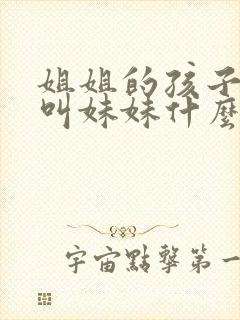 姐姐的孩子
叫妹妹什麼
宇宙點擊第一